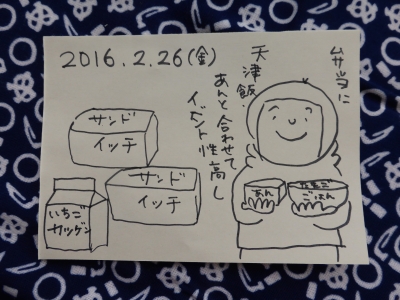 2016.2.26(金)
弁当に
天津飯!
あんと合わせて
イベント性高し
サンド
イッチ
サンド
イッチ
いちご
カツゲン
あん
たまご
ごはん